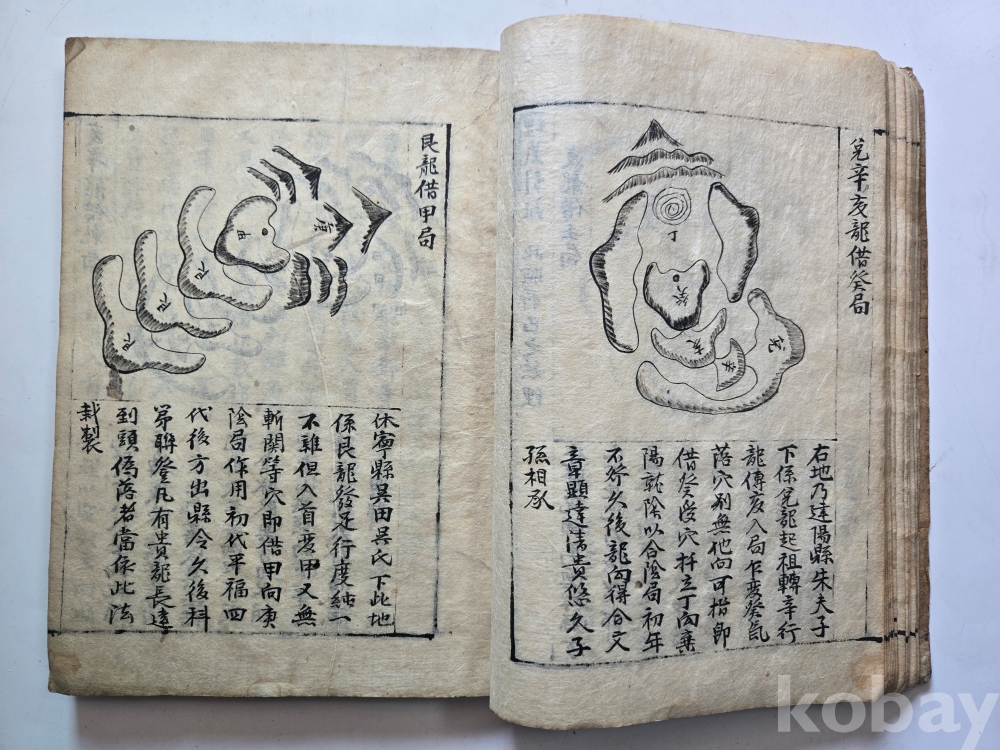 兌辛亥龍借癸局
丁
癸
亥
辛
兌
右地乃建陽縣朱夫子
下係兌龍起祖轉辛行
龍傳亥入局乍变癸氣
落穴别無他向可楷即
借癸受穴扦立丁向棄
陽就陰以合陰局初年
不吝久後龍向得合文
章顯達清貴悠久子
孫相承
艮龍借甲局
庚
甲
艮
艮
艮
休寧縣吴田吴氏下此地
係艮龍發足行度純一
不雜但入首变甲又無
斬関等穴即借甲向庚
陰局作用初代平福四
代後方出縣令久後科
第聯登凡有貴龍長遠
到頭偽落者當依此法
裁製
kobay